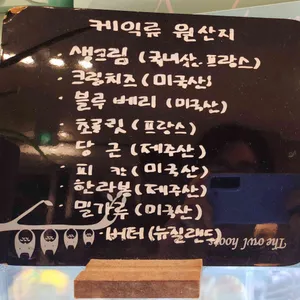 케익류 원산지
· 생크림 (국내산. 프랑스)
· 크림치즈 (미국산)
· 블루베리 (미국산)
· 초콜릿 (프랑스)
· 당근 (제주산)
· 피칸 (미국산)
· 한라봉 (제주산)
· 밀가루 (미국산)
· 버터 (뉴질랜드)
The owl hoops